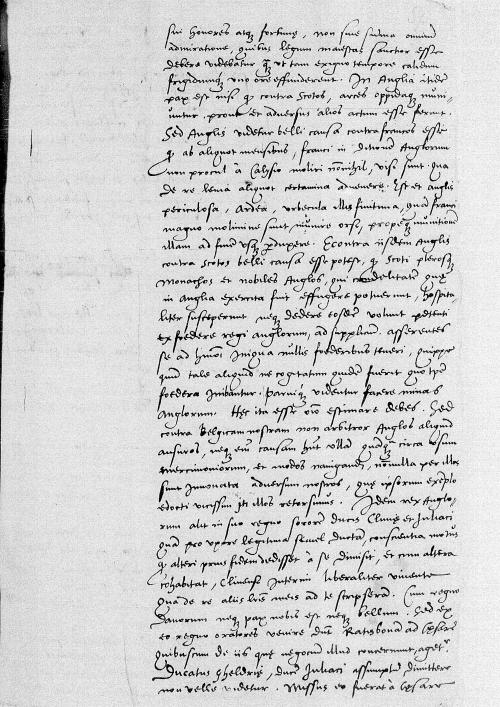 sui honores atq; fortunę, non sine summa omnium
admiratione, quibus legum maiestas sanctior esse
debere videbatur q̃ ut tam exiguo tempore calidum
frigidumq; uno ore effunderent. In Anglia itidem
pax est nisi q̃ contra Scotos, arces oppidaq; muni-
untur. prout et adversus alios actum esse ferunt.
Sed Anglis videtur belli causa contra francos esse
q̃ ab aliquot mensibus, franci in ditionem Anglorum
non procul a Calysio moliri nonnihil, visi sunt. qua
de re levia aliquot certamina advenere. Est et anglis
periculosa, Ardea, urbecula illis finitima, quam franci
magno molimine sunt munire orsi, propeq; munitionem
illam ad finem usq; perduxere. Econtra iisdem Anglis
contra Scotos belli causa esse potest, q̃ Scoti plerosq;
monachos et nobiles Anglos, qui crudelitatem quę
in anglia exercita fuit effugere potuerunt, hospita
liter susceperunt neq; dedere eosdem volunt petenti
ex foedere regi anglorum, ad supplicium, asserentes
se ad huiusmodi iniqua nullis foederibus teneri, quippe
quum tale aliquid ne cogitatum quidem fuerit quo tempore
foedera inibantur. Parviq; videntur facere minas
Anglorum. Hęc ita esse vero estimare debes. Sed
contra Belgicam nostram non arbitror Anglos aliquid
ausuros, neq; enim causam habent ullam quamq; circa usum
mercimoniorum, et modos navigandi, nonnulla per illos
sunt innovata adversum nostros, quę ipsorum exemplo
edocti vicissim in illos retorsimus. Idem rex Anglo-
rum alit in suo regno sororem ducis Clivię et Juliaci
quam pro uxore legitima semel ductam, conscientia motus
q̃ alteri prius fidem dedisset a se dimisit, et cum altera
cohabitat, Clivensi interim liberaliter vivente
qua de re aliis literis meis ad te scripseram. Cum regno
Danorum neq; pax nobis est neq; bellum. Sed ex
eo regno oratores venire dicuntur Ratisbonam ad Cęsarem
quibuscum de iis quę negocium illud concernunt, agetur.
Ducatus Gheldrię, ducem Juliaci assumptum dimittere
non velle videtur. Missus eo fuerat a Cęsare